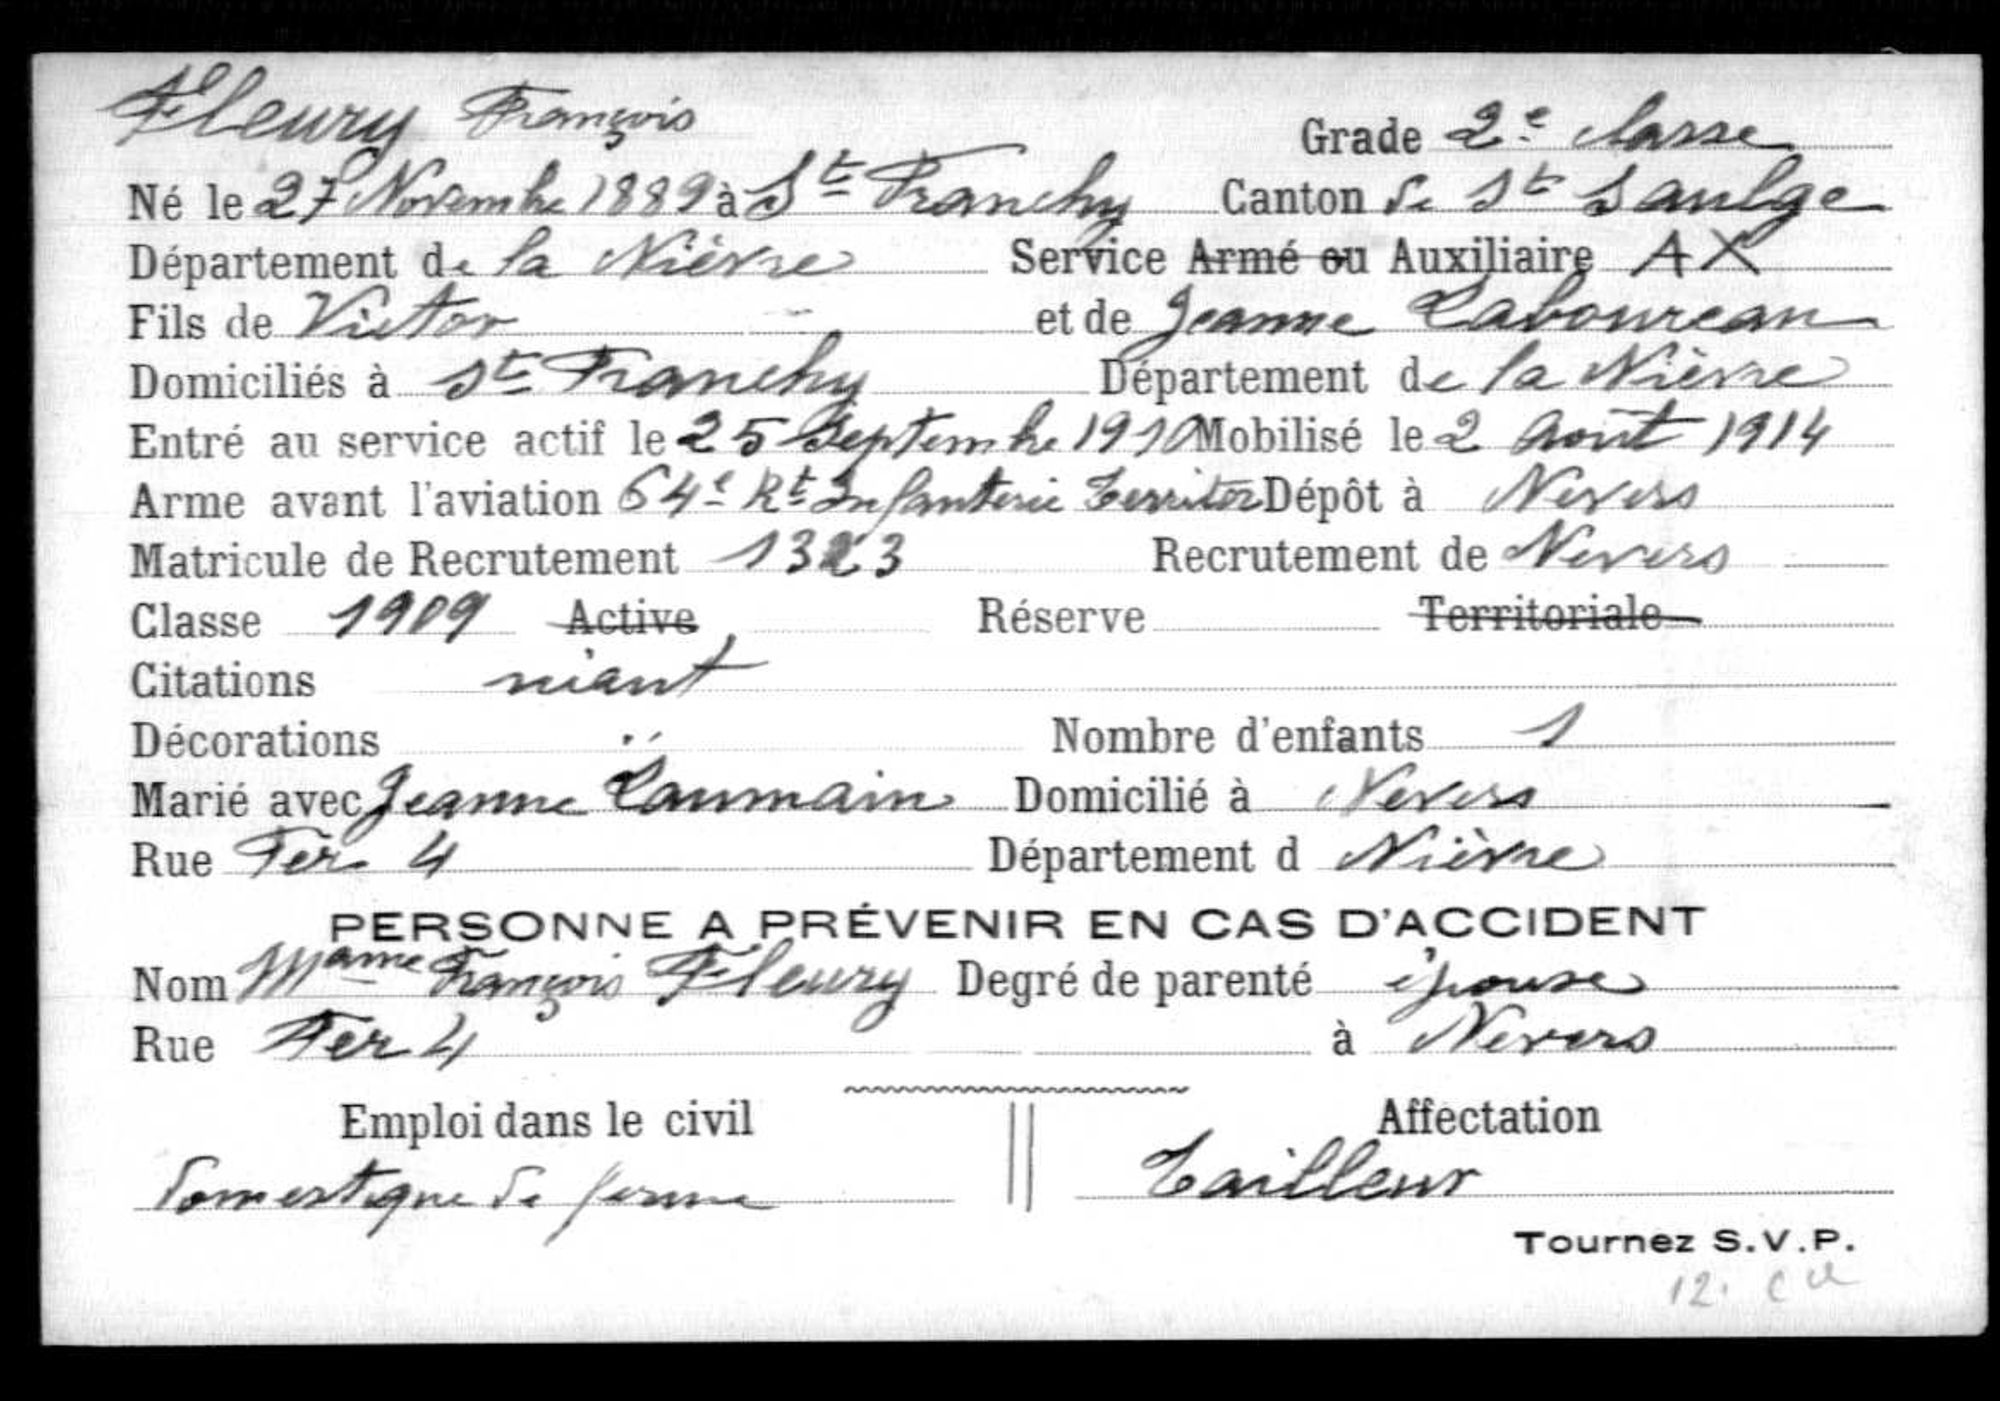 Fleury François
Grade 2e classe
Né le 27 Novembre 1889 à St Franchy Canton de St Saulge
Département de la Nièvre Service Armé ou Auxiliaire AX
Fils de Victor et de Jeanne Laboureau
Domiciliés à St Franchy Département de la Nièvre
Entré au service actif le 25 Septembre 1910 Mobilisé le 2 Aout 1914
Arme avant l'aviation 64e Rt Infanterie Territor Dépôt à Nevers
Matricule de Recrutement 1323 Recrutement de Nevers
Classe 1909 Active, Réserve Territoriale
Citations niant
Décorations " Nombre d'enfants 1
Marié avec Jeanne Laumain Domicilié à Nevers
Rue Fer 4 Département d Nièvre
PERSONNE A PRÉVENIR EN CAS D'ACCIDENT
Nom Mame François Fleury Degré de parenté épouse
Rue Fer 4 à Nevers
Emploi dans le civil Affectation
domestique de ferme Tailleur
Tournez S.V.P.
12.